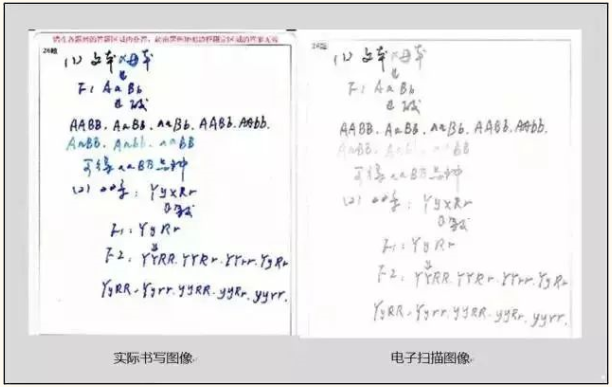 请在各题目的答题区域内作答，超出黑色矩形边框限定区域的答案无效
(1) 父本×母本
F1 AaBb
自交
AABB. AaBB. aaBb. AABb. AAbb.
AaBB. Aabb. aaBB
可得aaBB品种
(2) : YyxRr
F1: YyRr
F2: YYRR. YYRr. YYrr. YyRr
YyRR. Yyrr. yyRR. yyRr. yyrr.
实际书写图像
(1) 父本×母本
F1 AaBb
自交
AABB. AaBB. aaBb. AABb. AAbb.
AaBB. Aabb. aaBB
可得aaBB品种
(2) : YyxRr
F1: YyRr
F2: YYRR. YYRr. YYrr. YyRr
YyRR. Yyrr. yyRR. yyRr. yyrr.
电子扫描图像